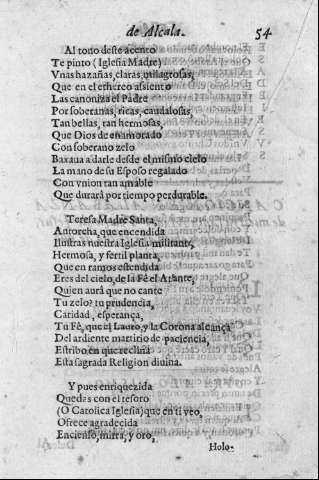 de Alcala. 54
Al tono deste acento
Te pinto (Iglesia Madre)
Vnas hazañas, claras, milagrosas,
Que en el ethereo assiento
Las canoniza el Padre
Por soberanas, ricas, caudalosas,
Tan bellas, tan hermosas,
Que Dios de enamorado
Con soberano zelo
Baxaua a darle desde el mismo cielo
La mano de su Esposo regalado
Con vnion tan amable
Que durarà por tiempo perdurable.
Teresa Madre Santa,
Antorcha, que encendida
Ilustras nuestra Iglesia militante,
Hermosa, y fertil planta,
Que en ramos estendida
Eres del cielo, de la Fè el Atlante,
Quien aurà que no cante
Tu zelo? tu prudencia,
Caridad, esperança,
Tu Fè, que el Lauro, y la Corona alcança
Del ardiente martirio de paciencia,
Estribo en que reclina
Esta sagrada Religion diuina.
Y pues enriquezida
Quedas con el tesoro
(O Catolica Iglesia) que en ti veo,
Ofrece agradecida
Encienso, mirra, y oro,
Holo-